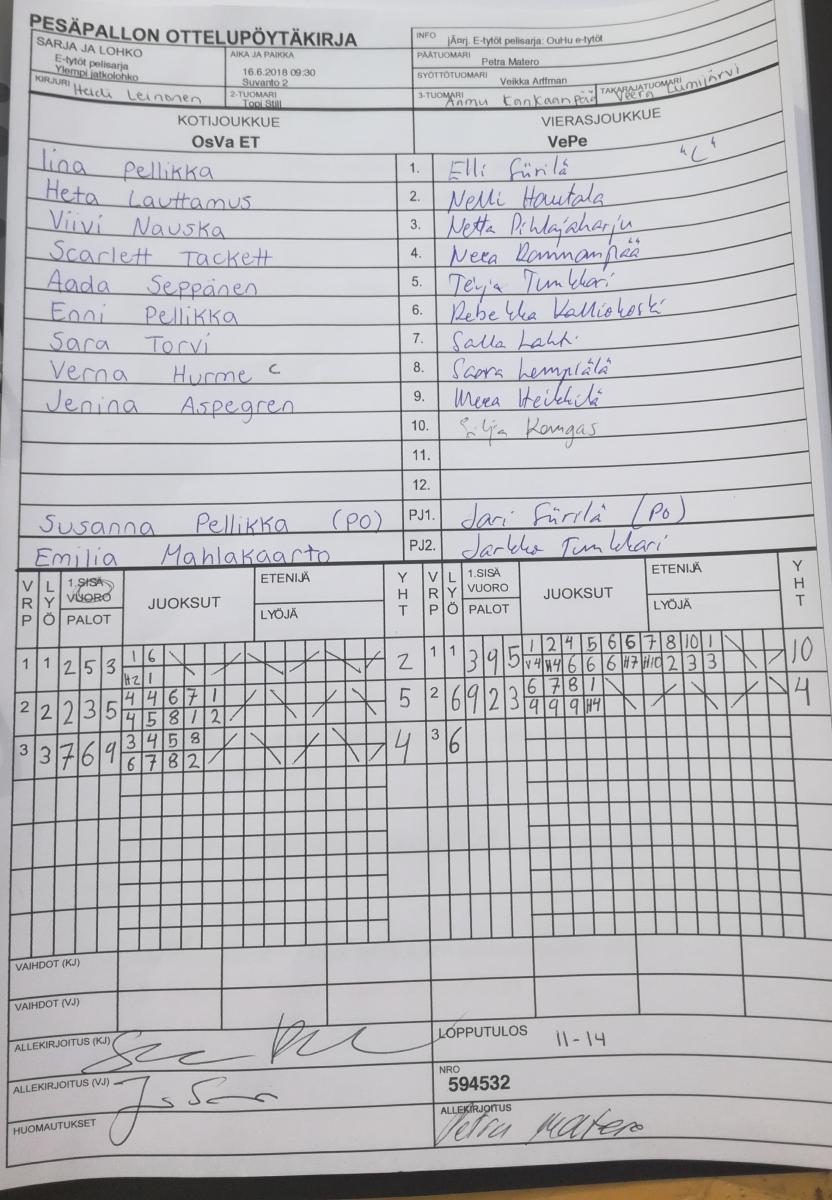 PESÄPALLON OTTELUPÖYTÄKIRJA
INFO jÃ¤rj. E-tytöt pelisarja: OuHu e-tytöt
SARJA JA LOHKO
E-tytöt pelisarja
Ylempi jatkolohko
AIKA JA PAIKKA
16.6.2018 09:30
Suvanto 2
PÄÄTUOMARI Petra Matero
SYÖTTÖTUOMARI Veikka Arffman
KIRJURI Heidi Leinonen
2-TUOMARI Topi Still
3-TUOMARI Anmu Kankaanpää
TAKARAJATUOMARI Veera Lumijärvi
KOTIJOUKKUE VIERASJOUKKUE
OsVa ET VePe
Iina Pellikka 1. Elli Siirilä "C"
Heta Lauttamus 2. Nelli Hautala
Viivi Nauska 3. Netta Pihlajaharju
Scarlett Tackett 4. Neea
Aada Seppänen 5. Teija Tunkkari
Enni Pellikka 6. Rebekka Kalliokoski
Sara Torvi 7. Salla Lahti
Verna Hurme C 8. Saara Lempiälä
Jenina Aspegren 9. Meea Heikkilä
10. Silja Kangas
11.
12.
Susanna Pellikka (PO) PJ1. Jari Siirilä (PO)
Emilia Mahlakaarto PJ2. Jarkko Tunkkari
VRP LYÖ 1.SISÄ VUORO PALOT JUOKSUT ETENIJÄ LYÖJÄ YHT VRP LYÖ 1.SISÄ VUORO PALOT JUOKSUT ETENIJÄ LYÖJÄ YHT
1 1 2 5 3 1 6 2 1 1 3 9 5 1 2 4 5 6 6 7 8 10 1 10
H2 1 V4 H4 6 6 6 H7 H10 2 3 3
2 2 2 3 5 4 4 6 7 1 5 2 6 9 2 3 6 7 8 1 4
4 5 8 1 2 9 9 9 H4
3 3 7 6 9 3 4 5 8 4 3 6
6 7 8 2
VAIHDOT (KJ)
VAIHDOT (VJ)
ALLEKIRJOITUS (KJ)
LOPPUTULOS 11-14
ALLEKIRJOITUS (VJ)
NRO
594532
HUOMAUTUKSET
ALLEKIRJOITUS
Petra Matero